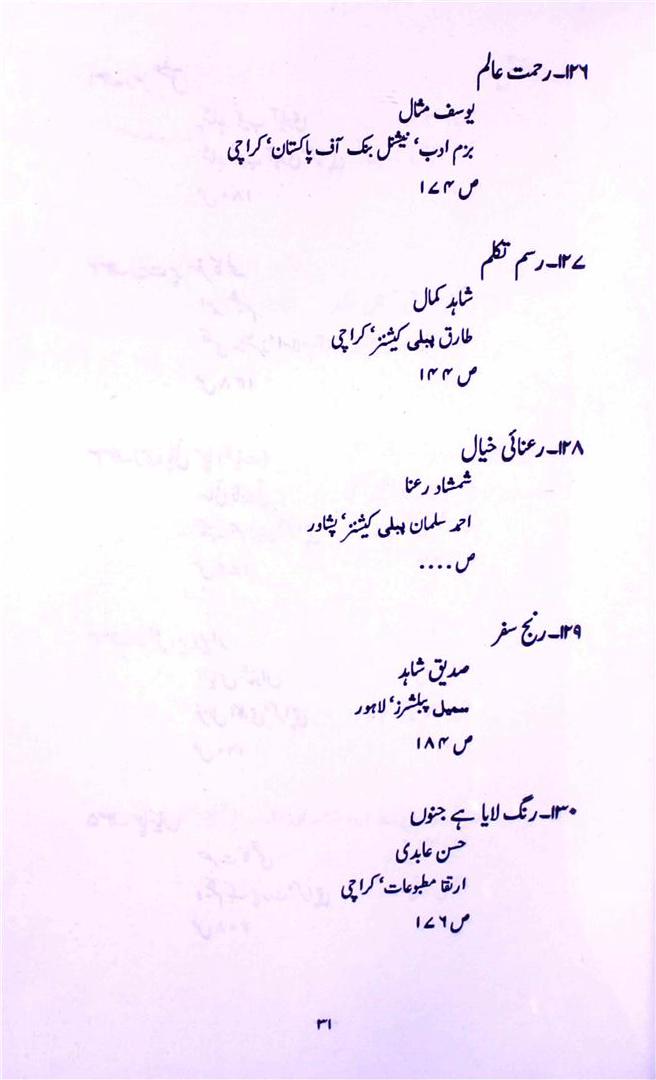 ۱۲۶۔ رحمت عالم
یوسف مثال
بزم ادب، نیشنل بنک آف پاکستان، کراچی
ص ۱۷۴
۱۲۷۔ رسم تکلم
شاہد کمال
طارق پبلی کیشنز، کراچی
ص ۱۴۴
۱۲۸۔ رعنائی خیال
شمشاد رعنا
احمد سلمان پبلی کیشنز، پشاور
ص ....
۱۲۹۔ رنج سفر
صدیق شاہد
سمبل پبلشرز، لاہور
ص ۱۸۴
۱۳۰۔ رنگ لایا ہے جنوں
حسن عابدی
ارتقا مطبوعات، کراچی
ص ۱۷۶
۳۱